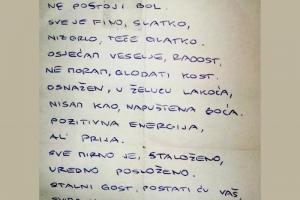 NE POSTOJI BOL.
SVE JE FINO, SLATKO,
NIZBRLO, TEČE GLATKO.
OSJEĆAM VESELJE, RADOST,
NE MORAM, GLODATI KOST.
OSNAŽEN, U ŽELUCU LAKOĆA,
NISAM KAO, NAPUŠTENA GOĆA.
POZITIVNA ENERGIJA,
AL' PRIJA.
SVE MIRNO JE, STALOŽENO,
UREDNO POSLOŽENO.
STALNI GOST, POSTATI ĆU VAŠ,